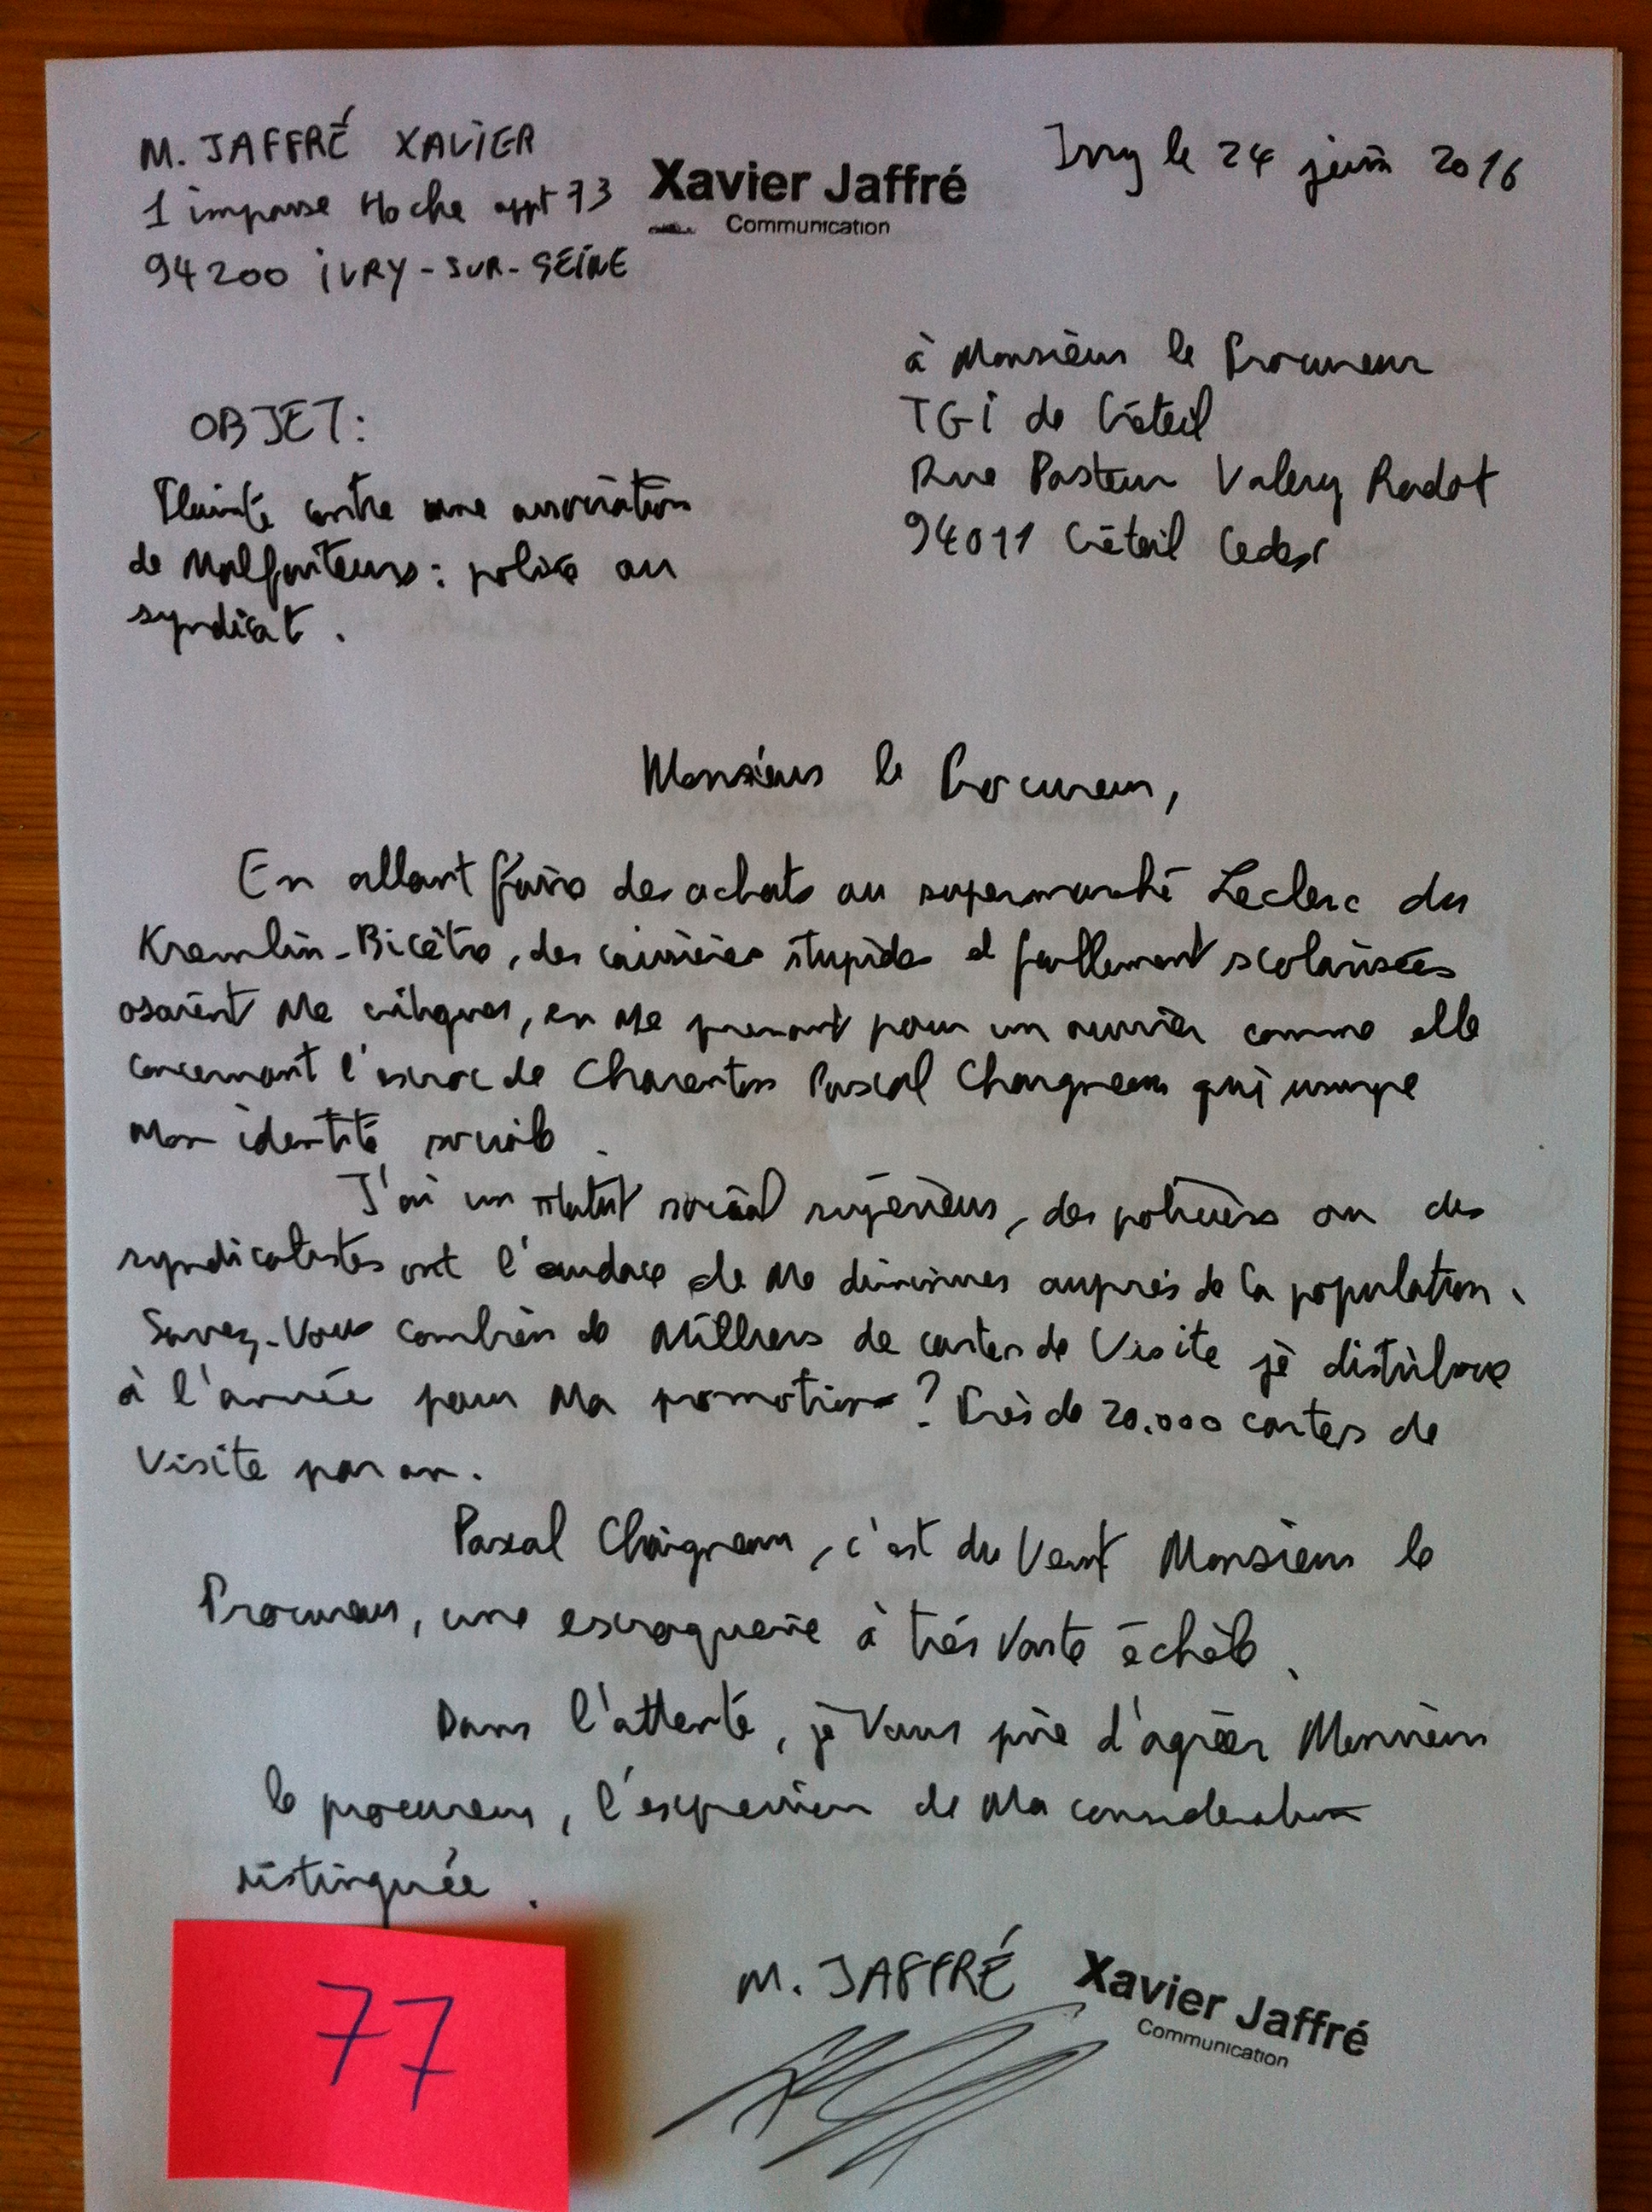 M. JAFFRÉ XAVIER
1 impasse Hoche appt 73
94200 IVRY-SUR-SEINE
Xavier Jaffré
Communication
Ivry le 24 juin 2016
à Monsieur le Procureur
TGI de Créteil
Rue Pasteur Valery Radot
94011 Créteil Cedex
OBJET:
Plainte contre une association
de Malfaiteurs: police ou
syndicat.
Monsieur le Procureur,
En allant faire des achats au supermarché Leclerc du
Kremlin-Bicêtre, des caissières stupides et faiblement scolarisées
osaient Me critiquer, en Me prenant pour un ouvrier comme elle
concernant l'escroc de Charenton Pascal Chaigneau qui usurpe
Mon identité sociale.
J'ai un statut social supérieur, des policiers ou des
syndicalistes ont l'audace de Me diminuer auprès de la population.
Savez-Vous combien de Milliers de cartes de Visite je distribue
à l'année pour Ma promotion? Près de 20.000 cartes de
Visite par an.
Pascal Chaigneau, c'est du Vent Monsieur le
Procureur, une escroquerie à très Vaste échelle.
Dans l'attente, je Vous prie d'agréer Monsieur
le procureur, l'expression de Ma considération
distinguée.
M. JAFFRÉ
Xavier Jaffré
Communication
77